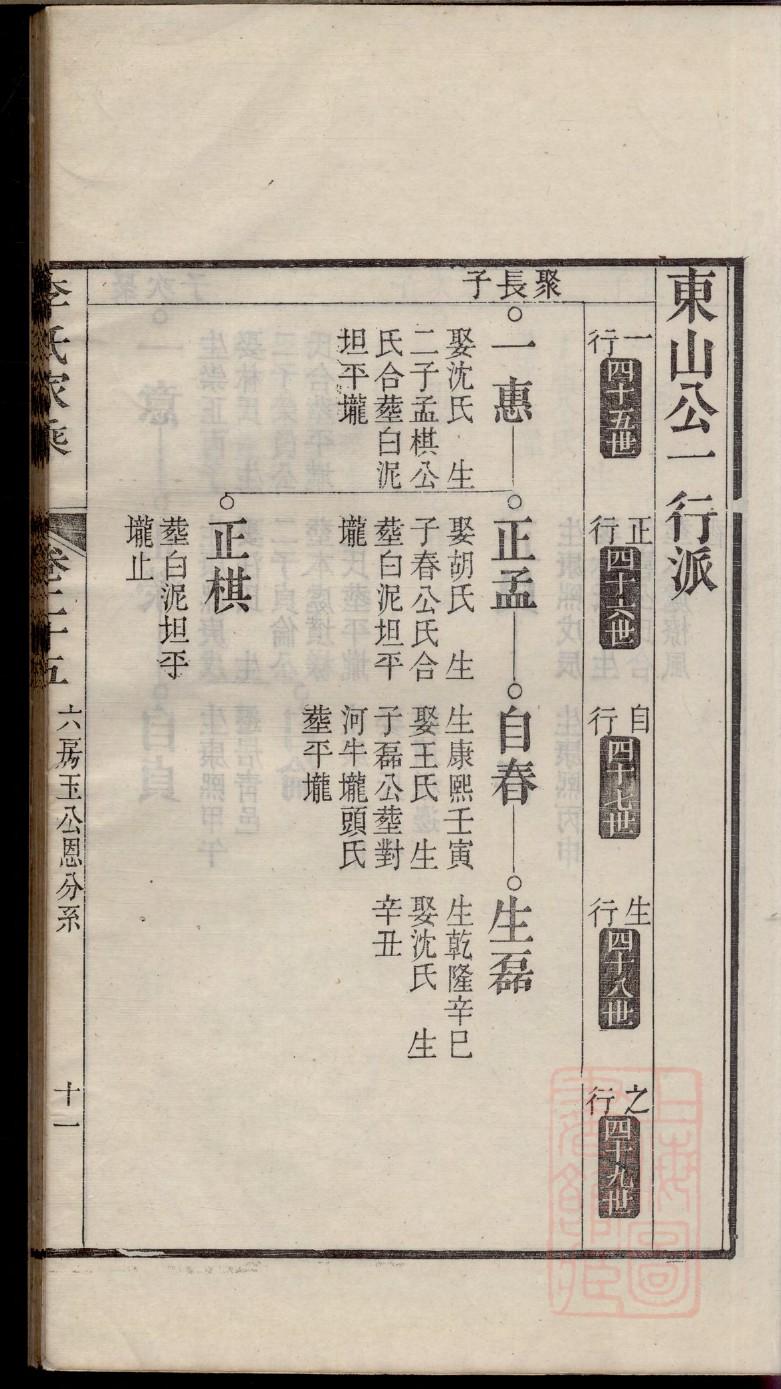 東山公一行派
一行 四十五世
正行 四十六世
自行 四十七世
生行 四十八世
之行 四十九世
聚長子
一惠
娶沈氏 生
二子孟棋公
氏合塟白泥
坦平壠
正孟
娶胡氏 生
子春公氏合
塟白泥坦平
壠
自春
生康熙壬寅
娶王氏 生
子磊公塟對
河牛壠頭氏
塟平壠
生磊
生乾隆辛巳
娶沈氏 生
辛丑
正棋
塟白泥坦平
壠止
李氏家乘
卷二十五
六房玉公恩分系
十一